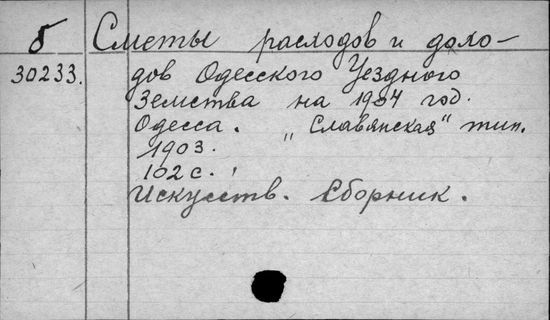 б Сметы расходов и дохо-
30233. дов Одесского Уездного
Земства на 1904 год.
Одесса. „Славянская" тип.
1903.
102 с.
Искусств. Сборник.